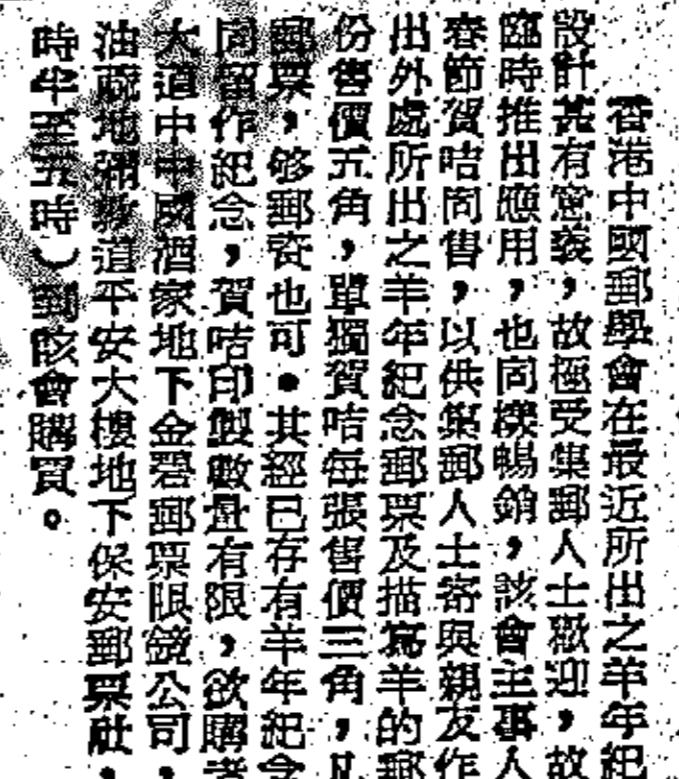 香港中國郵學會在最近所出之羊年紀
設計甚有意義，故極受集郵人士歡迎，故
臨時推出應用，也同樣暢銷，該會主事人
春節賀咭同售，以供集郵人士寄與親友作
出外處所出之羊年紀念郵票及描寫羊的郵
份售價五角，單獨賀咭每張售價三角，凡
郵票，够郵寄也可。其經已存有羊年紀念
同留作紀念，賀咭印製數量有限，欲購者
大道中中國酒家地下金碧郵票眼鏡公司，
油蔴地彌敦道平安大樓地下保安郵票社，
時半至五時）到該會購買。